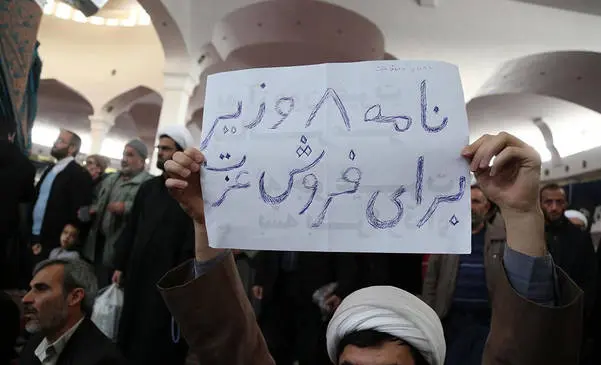 نامه ۸ وزیر
برای فروش عزت